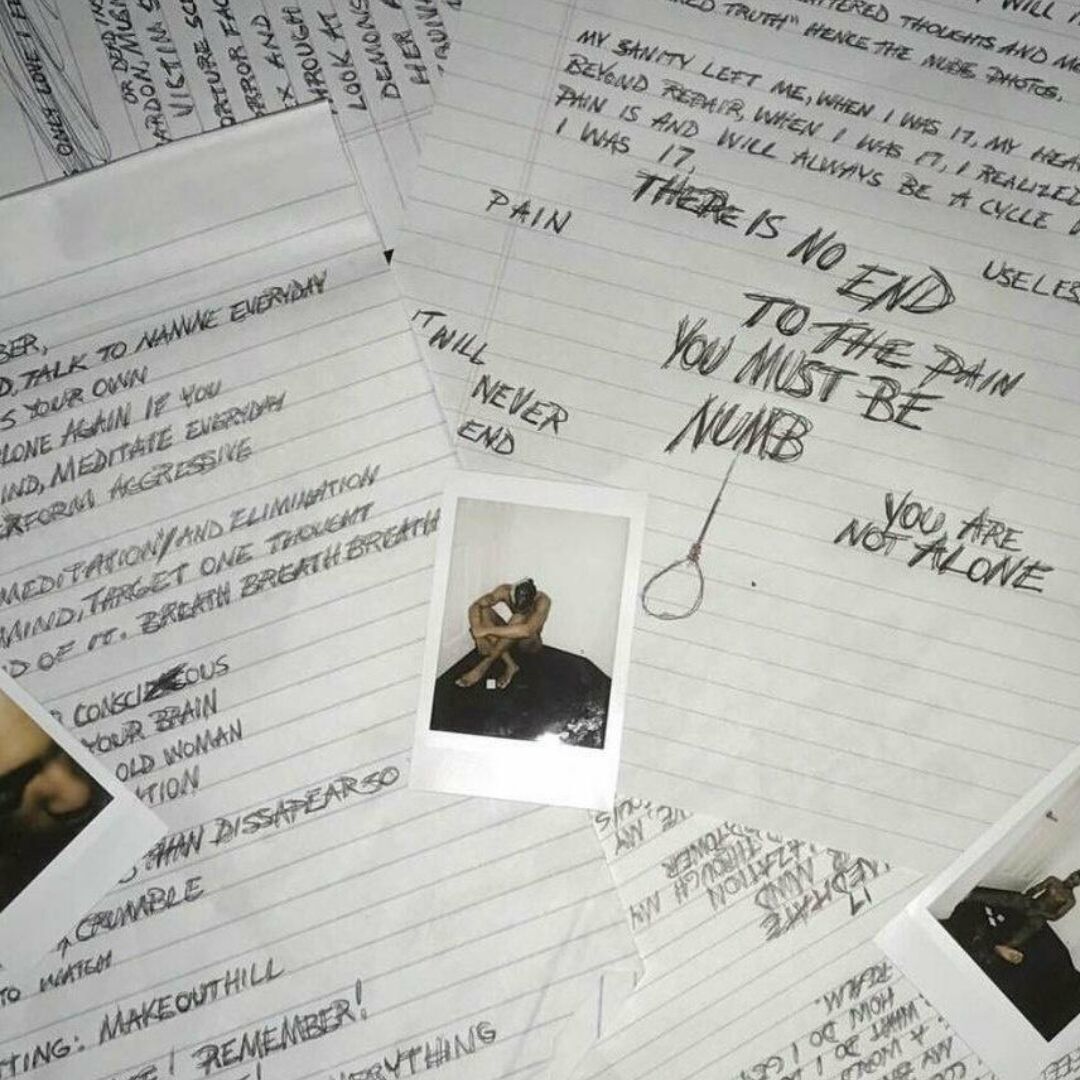 ONLY LOVE I FE
OR DEAD IN
ARDON, MU
VICTIM S
ORTURE SC
RROR FAC
X AND
THROUGH
LOOK AT
DEMONS
HER A
WILL
TTERED THOUGHTS AND
TRUTH" HENCE THE NUDE PHOTOS,
MY SANITY LEFT ME, WHEN I WAS 17, MY HEA
BEYOND REPAIR, WHEN I WAS 17, I REALIZED
PAIN IS AND WILL ALWAYS BE A CYCLE
I WAS 17,
PAIN
THERE IS NO END
USELES
TO THE PAIN
YOU MUST BE
NUMB
IT WILL
NEVER
END
YOU ARE
NOT ALONE
BER,
D, TALK TO NAMINE EVERYDAY
S YOUR OWN
LONE AGAIN IF YOU
IND, MEDITATE EVERYDAY
RFORM AGGRESSIVE
MEDITATION"/AND ELIMINATION
MIND, TARGET ONE THOUGHT
D OF IT. BREATH BREATH BREATH
CONSCI OUS
YOUR BRAIN
OLD WOMAN
TION
THAN DISSAPEAR SO
CRUMBLE
TO WATCH
TTING: MAKEOUTHILL
! REMEMBER!
EVERYTHING
MEDITATE
MIND
THROUGH MY
TOWER
MY
REALM.
HOW DO I
WHAT DO I
A WORLD
MY